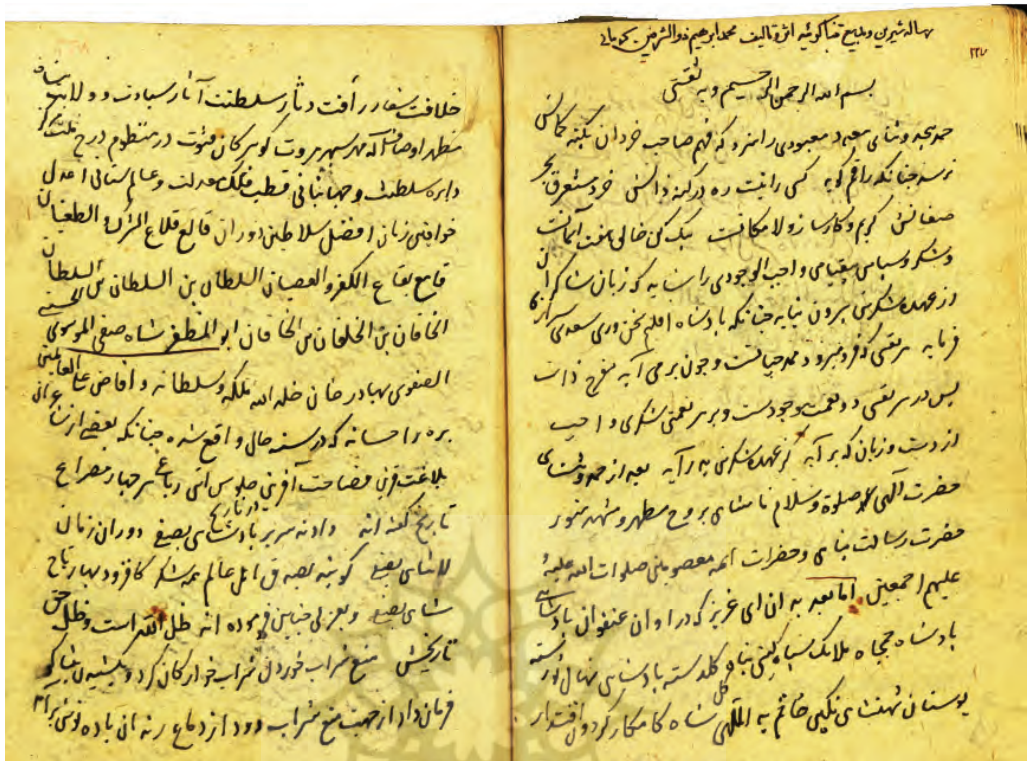 رساله شیرین و بدایع تنباکوئیه اثر و تالیف محمد ابرهیم ذوالشرفین
۲۲۷
بسم الله الرحمن الرحیم وبه ثقتی
حمد بیحد و ثنای معبودی را سزد که فهم صاحب خردان بکنه کمالش
نرسد چنانکه راقم گوید کسی را نیست ره در کنه ذاتش خرد مستغرق بحر
صفاتش کریم و کارساز و لامکانست بیک کن خالق هفت آسمانست
و شکر و سپاس بیقیاس واجب الوجودی را سزد که زبان شاکران
از عهده شکرش بیرون نیاید چنانکه پادشاه اقلیم سخن وری سعدی
فرماید هر نفسی که فرو میرود ممد حیاتست و چون بر می آید مفرح ذات
پس در هر نفسی دو نعمت موجودست و بر هر نعمتی شکری واجب
از دست و زبان که بر آید کز عهده شکرش بدر آید بعد از حمد و ثنای
حضرت الهی صلوة و سلام نامتناهی بر روح مطهر و مشهد منور
حضرت رسالت پناهی و حضرات ائمه معصومین صلوات الله علیه و
علیهم اجمعین اما بعد بدان ای عزیز که در اوان عنفوان پادشاهی
پادشاه جمجاه ملایک سپاه گیتی پناه گلدسته پادشاهی نهال نورسته
بوستان شهنشاهی نگین خاتم ید اللهی شاه کامکار گردون اقتدار
خلافت شعار رأفت دثار سلطنت آثار سیادت و ولایت پناه
مظهر اوصاف اله مهر سپهر مروت گوهر کان فتوت در منتظم درج
دایره سلطنت و جهانبانی قطب فلک معدلت و عالم ستانی اعدل
خواقین زمان افضل سلاطین دوران قالع قلاع الشرک و الطغیان
قامع بقاع الکفر والعصیان السلطان بن السلطان بن السلطان
الخاقان بن الخاقان بن الخاقان ابو المظفر شاه صفی الموسوی الحسینی
الصفوی بهادر خان خلد الله ملکه و سلطانه و افاض علی العالمین
بره و احسانه که در سنه حال واقع شده چنانکه بعضی از شاعران
بلاغت قرین فصاحت آفرین جلوس اش رباعی هر چهار مصراع
تاریخ گفته اند دادند سریر پادشاهی بصفی دوران زمان
گویند بصدق اهل عالم همه شکر کافزود بهار تاج
شاهی بصفی و بعضی چنین فرموده اند ظل الله است و ظل حق
تاریخش منع شراب خوردن شراب خوارکان کرد
فرمان داد از جهت منع شراب دود از دماغ رندان باده نوش برآمد